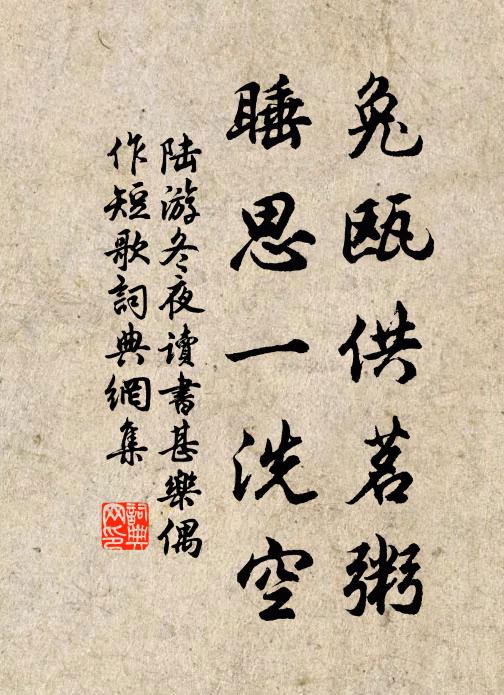 兔瓯供茗粥
睡思一洗空
陆游冬夜读书甚乐偶
作短歌词典网集
词典网印